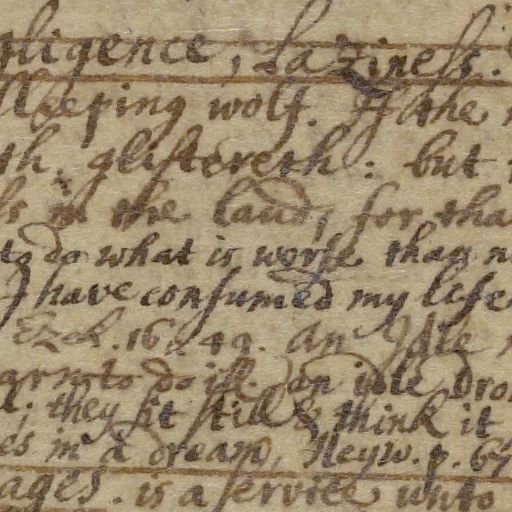 gligence, Laziness.
sleeping wolf. If the
th, glistereth: but
ls in the land, for tha
to do what is worse than n
I have consumed my life
Ezek. 16. 49. An Idle
arn to do ill. an idle dro
d; they sit still & think it
es in a dream, Heyw. p. 67
ages. is a service unto